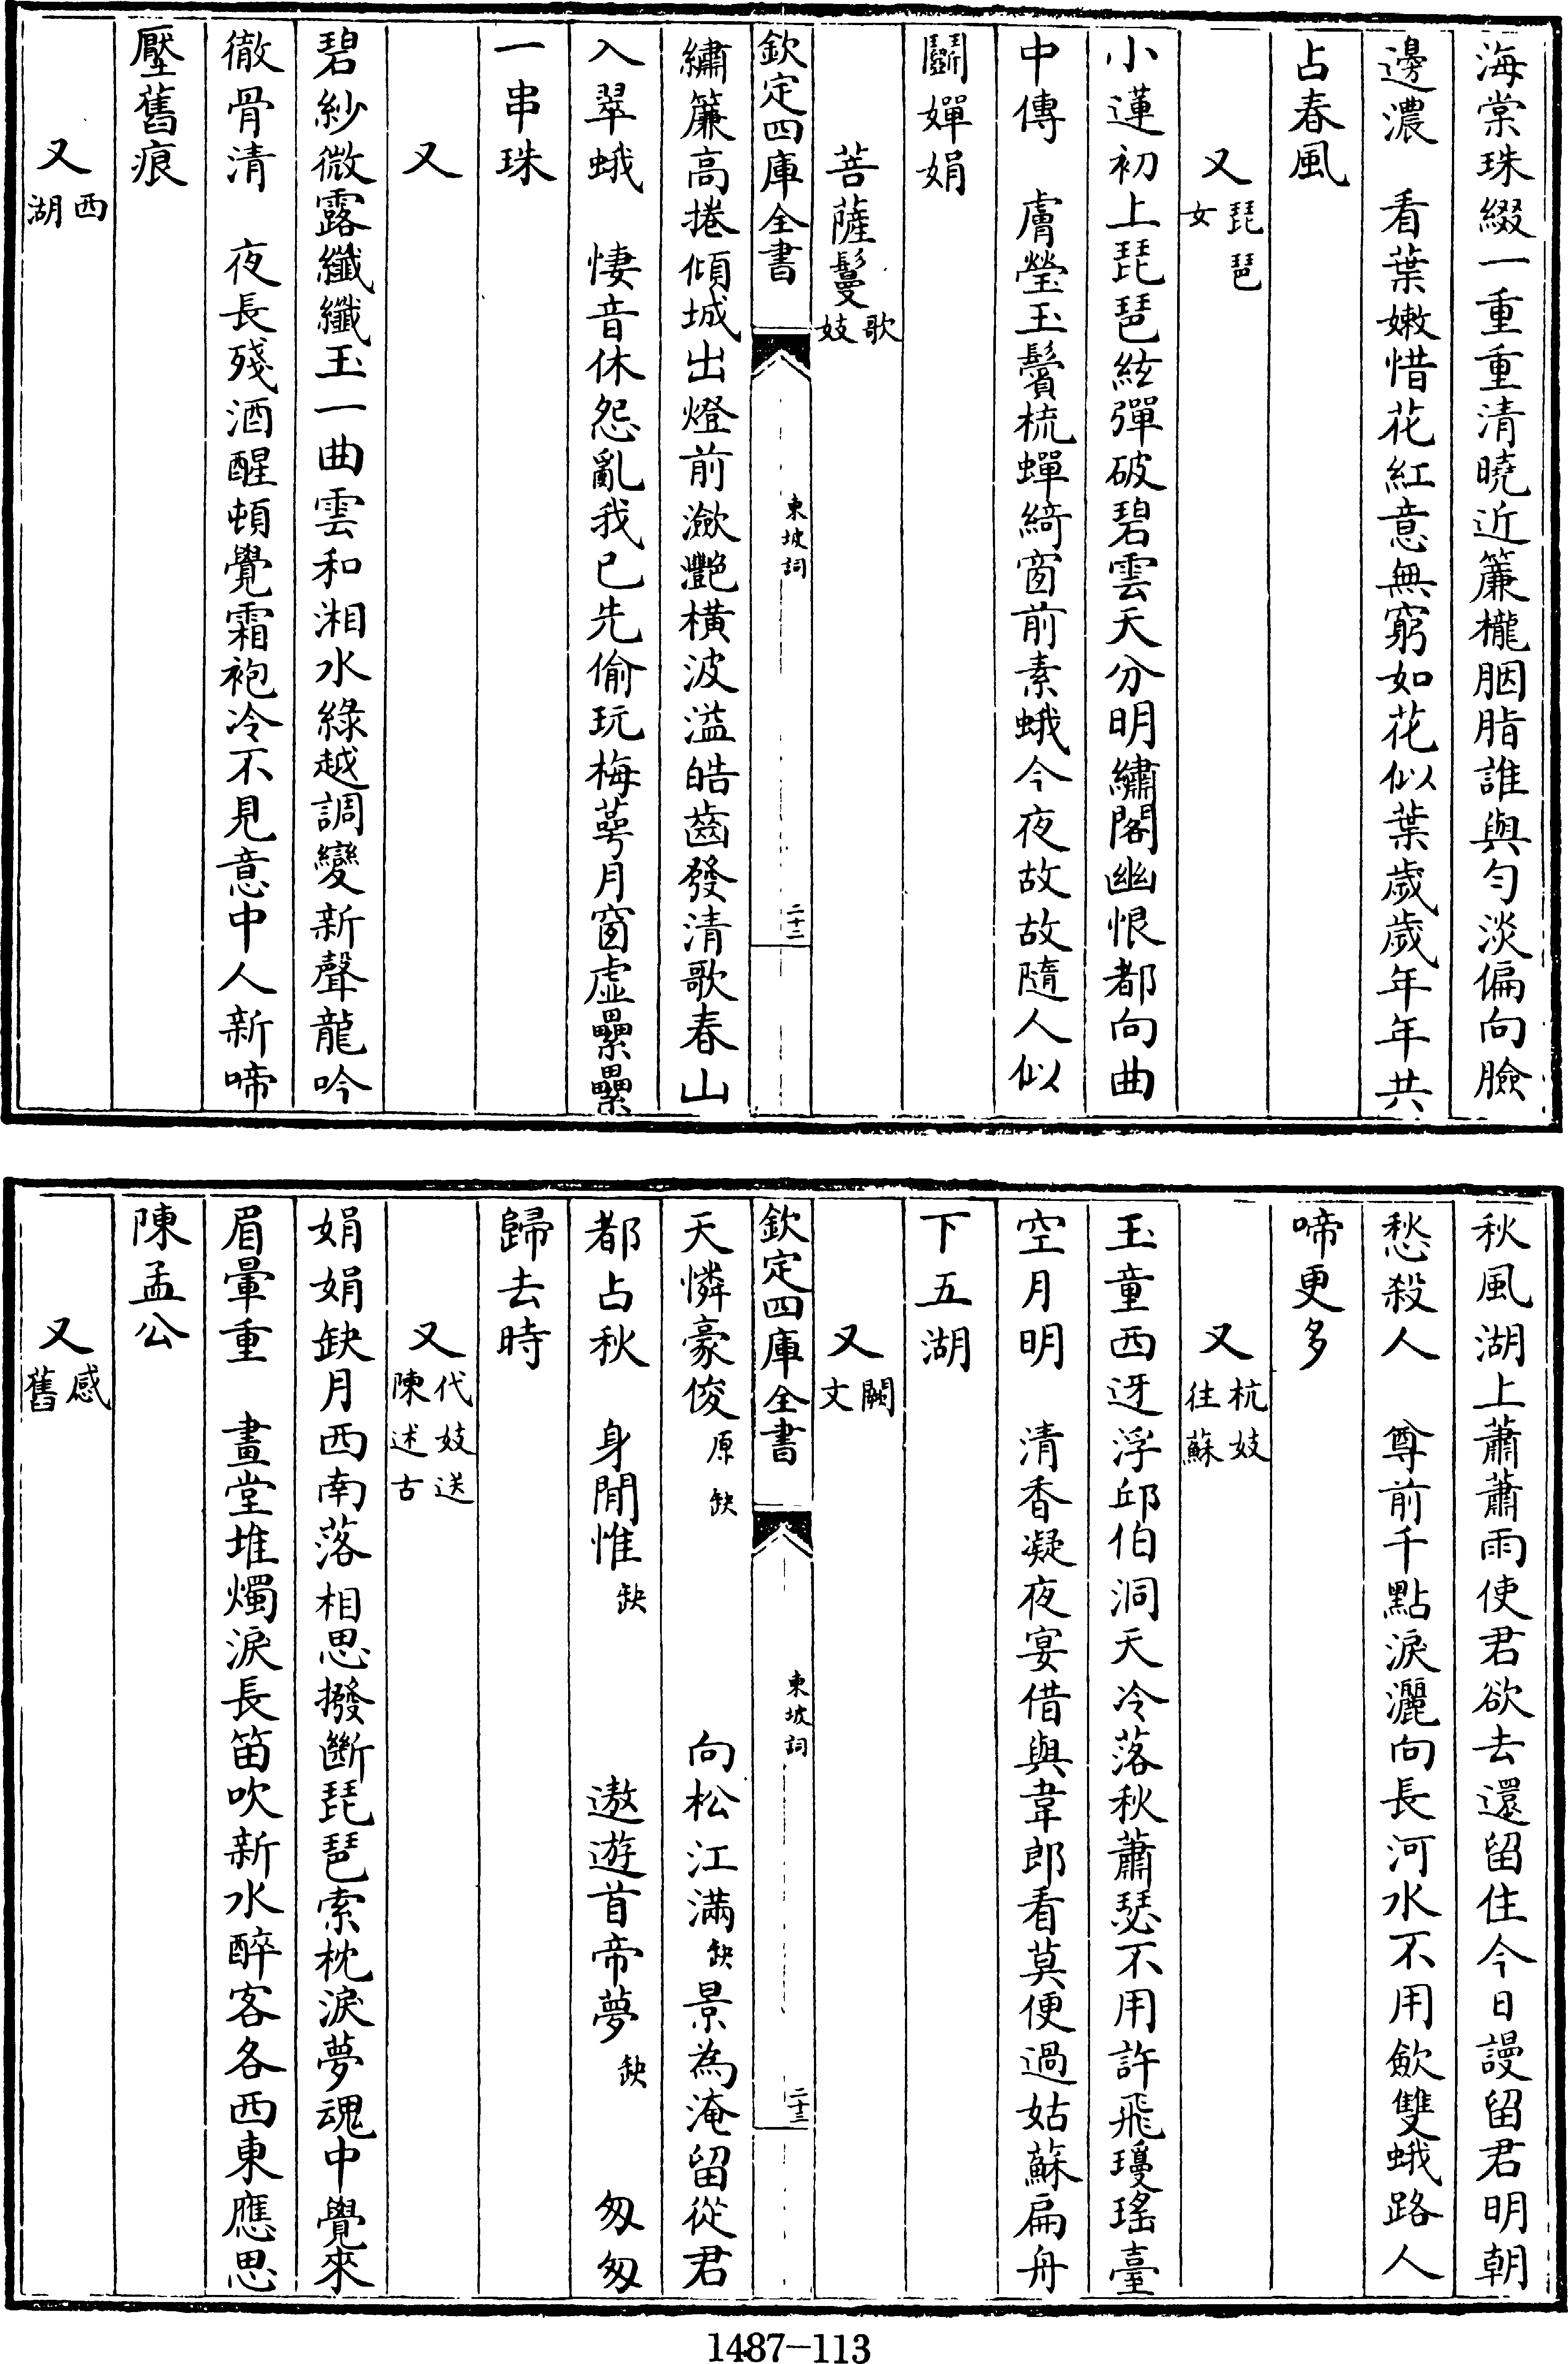 海棠珠綴一重重清曉近簾櫳胭脂誰與勻淡偏向臉
邊濃　看葉嫩惜花紅意無窮如花似葉歲歲年年共
占春風
又琵琶女
小蓮初上琵琶絃彈破碧雲天分明繡閣幽恨都向曲
中傳　膚瑩玉鬢梳蟬綺窗前素蛾今夜故故隨人似
鬭嬋娟
菩薩鬘歌妓
欽定四庫全書
東坡詞
二十二
繡簾高捲傾城出燈前瀲灩橫波溢皓齒發清歌春山
入翠蛾　悽音休怨亂我已先偷玩梅萼月窗虛纍纍
一串珠
又
碧紗微露纖纖玉一曲雲和湘水綠越調變新聲龍吟
徹骨清　夜長殘酒醒頓覺霜袍冷不見意中人新啼
壓舊痕
又西湖
秋風湖上蕭蕭雨使君欲去還留住今日謾留君明朝
愁殺人　尊前千點淚灑向長河水不用歛雙蛾路人
啼更多
又杭妓往蘇
玉童西迓浮邱伯洞天冷落秋蕭瑟不用許飛瓊瑤臺
空月明　清香凝夜宴借與韋郎看莫便過姑蘇扁舟
下五湖
又闕文
欽定四庫全書
東坡詞
二十三
天憐豪俊原缺　向松江滿缺景為淹留從君
都占秋　身閒惟缺　遨遊首帝夢缺　匆匆
歸去時
又代妓送陳述古
娟娟缺月西南落相思撥斷琵琶索枕淚夢魂中覺來
眉暈重　畫堂堆燭淚長笛吹新水醉客各西東應思
陳孟公
又感舊
1487-113